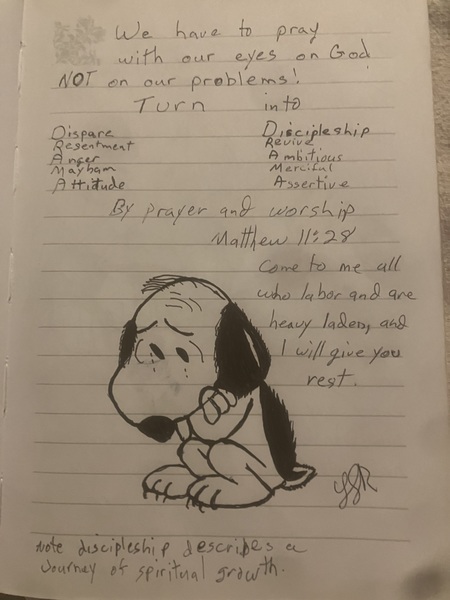 We have to pray
with our eyes on God
NOT on our problems!
Turn into
Dispare Discipleship
Resentment Revive
Anger Ambitious
Mayham Merciful
Attitude Assertive
By prayer and worship
Matthew 11:28
Come to me all
who labor and are
heavy laden, and
I will give you
rest.
Note discipleship describes a
Journey of spiritual growth.